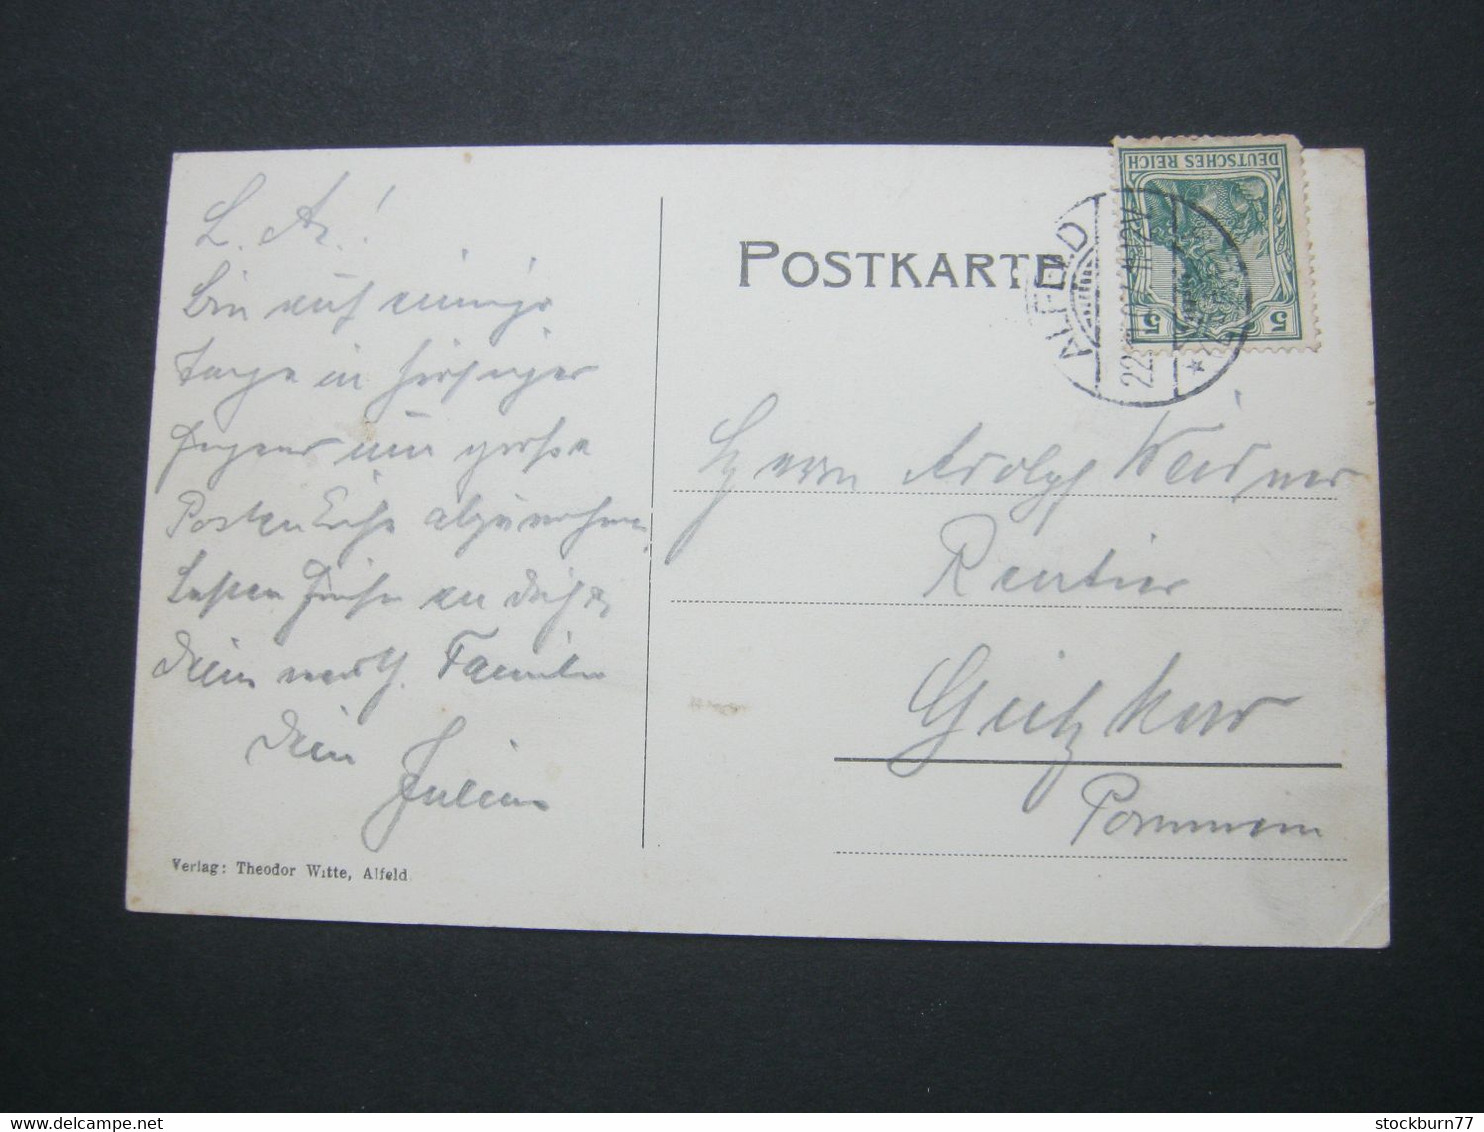 L. A.!
Bin auf einige
Tage in hiesiger
Gegend um große
Posten Eiche abzunehmen,
besten Grüße an Dich &
Deine werth. Familie
Dein
Julius
Verlag: Theodor Witte, Alfeld.
POSTKARTE
DEUTSCHES REICH
5 5
ALFELD
22.
Herrn Adolph Weidner
Rentier
Gützkow
Pommern
stockburn77